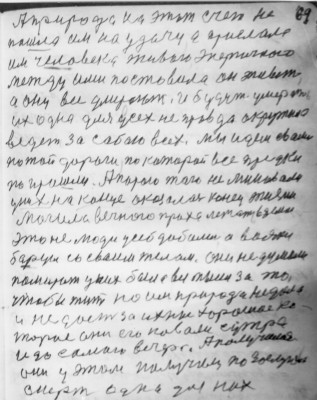 69
А природа на этот счет не
пошла им на удачу а прислала
им человека живого энергичного
между ими поставила он живет
а они все умирают. И будут умирать
их одна для всех не правда
ведет за собою всех. Мы идем
по той дороги по которой все предки
по гришли. А порого того не миновали
у них на конце оказался конец жизни
Могила вечного праха лежать в земли
Это не люди
со своим телом. они не думали
помирать у них были за то,
чтобы жить но им природа не дала
и не даст за их не хорошее ко
торое они его ковали с утра
и до самого вечера. А получили
они у этом получили по заслугам
смерть одна для них